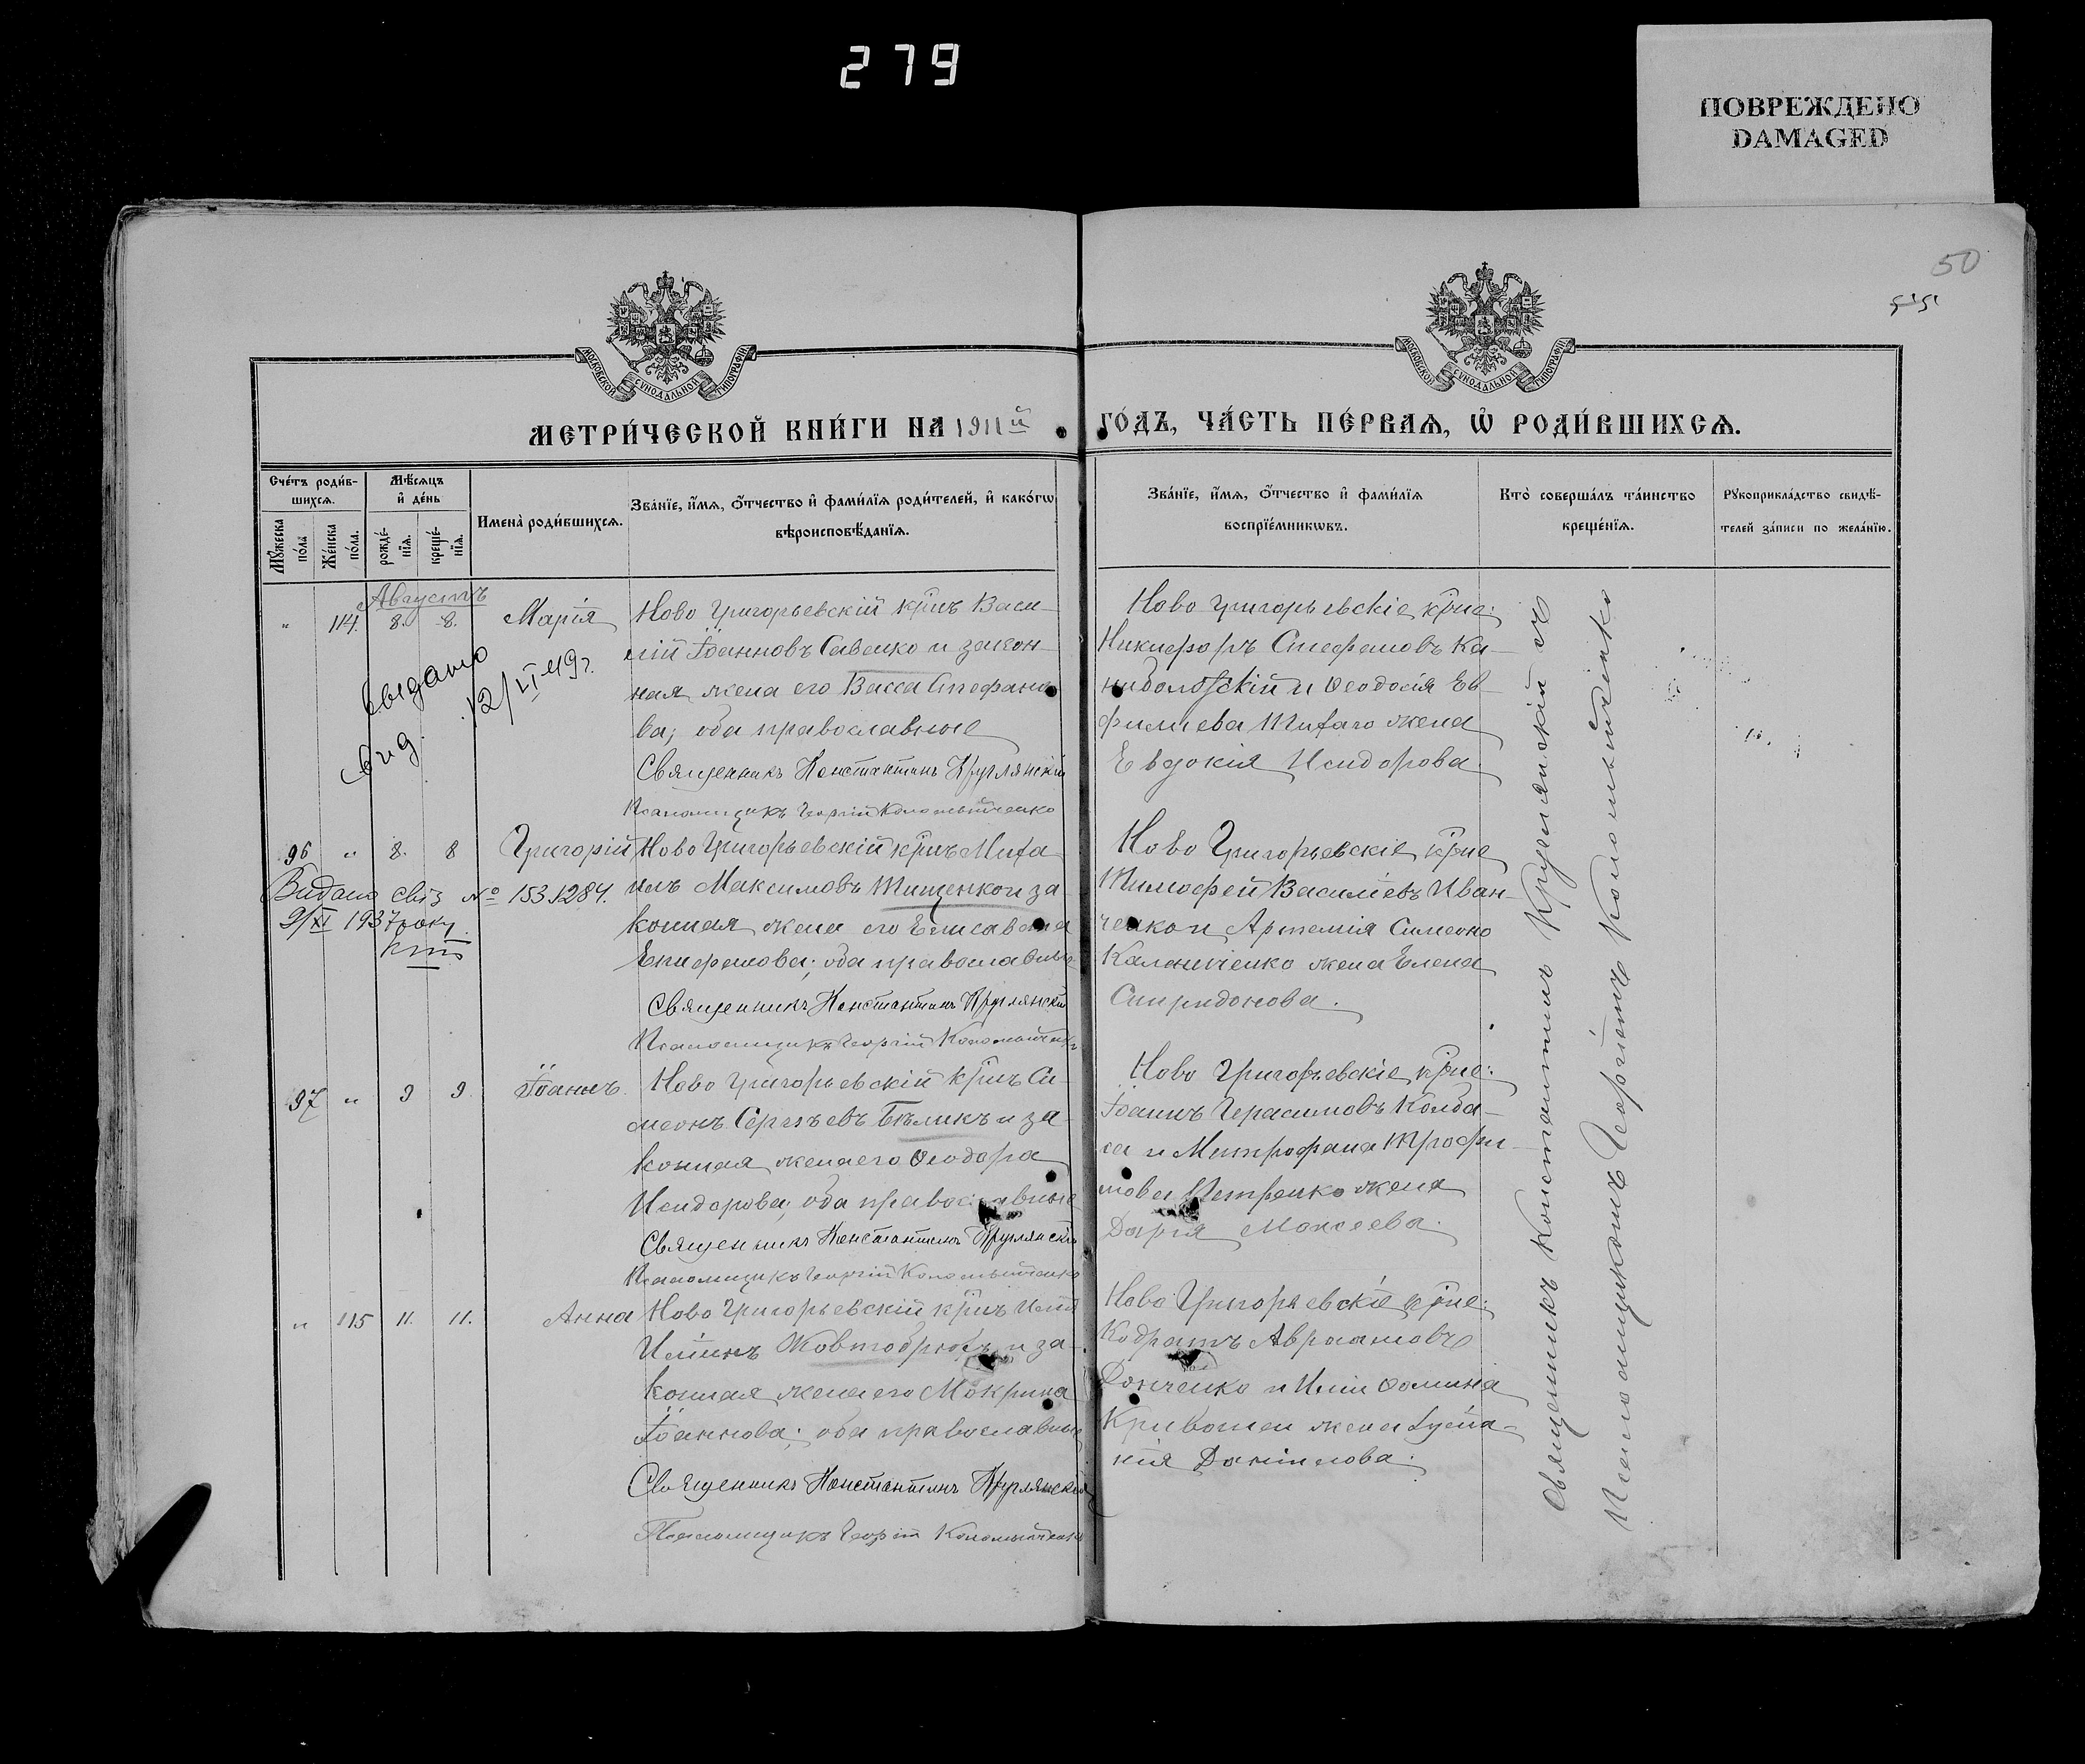 279
ПОВРЕЖДЕНО
DAMAGED
50
МОСКОВСКОЙ СѴНОДАЛЬНОЙ ТИПОГРАФІИ
МОСКОВСКОЙ СѴНОДАЛЬНОЙ ТИПОГРАФІИ
МЕТРИ́ЧЕСКОЙ КНИ́ГИ НА 1911й ГО́ДЪ, ЧА́СТЬ ПЕ́РВАѦ, Ѡ҆ РОДИ́ВШИХСѦ.
Сче́тъ роди́в-
шихсѧ.
Мꙋ́жеска
по́лꙋ
Же́нска
по́ла.
Мѣ́сѧцъ
и҆ де́нь
рожде́-
нїѧ.
креще́-
нїѧ.
Имена̀ роди́вшихсѧ.
Зва́нїе, и҆́мѧ, ѻ҆́тчество и҆ фами́лїѧ роди́телей, и҆ како́гѡ
вѣроисповѣ́данїѧ.
Зва́нїе, и҆́мѧ, ѻ҆́тчество и҆ фами́лїѧ
воспрїе́мникѡвъ.
Кто̀ соверша́лъ та́инство
креще́нїѧ.
Рꙋкоприкла́дство свидѣ́-
телей за́писи по жела́нїю.
Августъ
" 114. 8. 8. Марія
Ново Григорьевскій крнъ Васи-
лій Іоанновъ Савенко и закон-
ная жена его Васса Стефано
ва; оба православные
Священникъ Константинъ Круглянскій
Псаломщикъ Георгій Коломыйченко
Ново Григорьевскіе крне:
Никифоръ Стефановъ Ка-
ниболоцкій и Ѳеодосія Ев-
фиміева Титаго жена
Евдокія Исидорова.
выдано
свид. 12/VI-49г.
96 " 8. 8 Григорій
Ново Григорьевскій крнъ Миха
илъ Максимовъ Тищенко и за
конная жена его Елисавета
Епифанова; оба православные
Священникъ Константинъ Круглянскій
Псаломщикъ Георгій Коломыйченко
Ново Григорьевскіе крне
Тимофей Василіевъ Иван-
ченко и Артемія Симеоно
Калениченко жена Елена
Спиридонова.
Видано свід № 153.1284.
9/XI 1937 року
97 " 9 9 Іоаннъ.
Ново Григорьевскій крнъ Си-
меонъ Сергѣевъ Бѣликъ и за-
конная жена его Ѳеодора
Исидорова; оба православные
Священникъ Константинъ Круглянскій
Псаломщикъ Георгій Коломыйченко
Ново Григорьевскіе крне:
Іоаннъ Герасимовъ Колба-
са и Митрофана Трофи-
мова Петренко жена
Дарія Моисеева.
" 115 11. 11. Анна
Ново Григорьевскій крнъ Илія
Иліинъ Жовтобрюхъ и за-
конная жена его Мокрина
Іоаннова; оба православные
Священникъ Константинъ Круглянскій
Псаломщикъ Георгій Коломыйченко
Ново Григорьевскіе крне:
Кодратъ Авраамовъ
Донченко и Иліи Ѳомина
Кривошеи жена
Даніилова.
Священникъ Константинъ Круглянскій съ
Псаломщикомъ Георгіемъ Коломыйченко